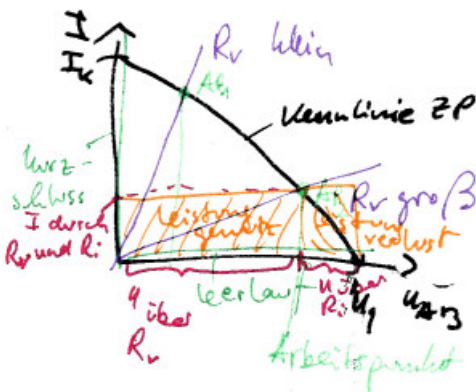 I
I_K
R_V klein
AP_1
Kennlinie ZP
kurz-
schluss
I durch
R_V und R_i
Leistung
genutzt
Leistung
verlust
R_V groß
U über
R_V
Leerlauf
U über
R_i
U_1
U_AB
Arbeitspunkt